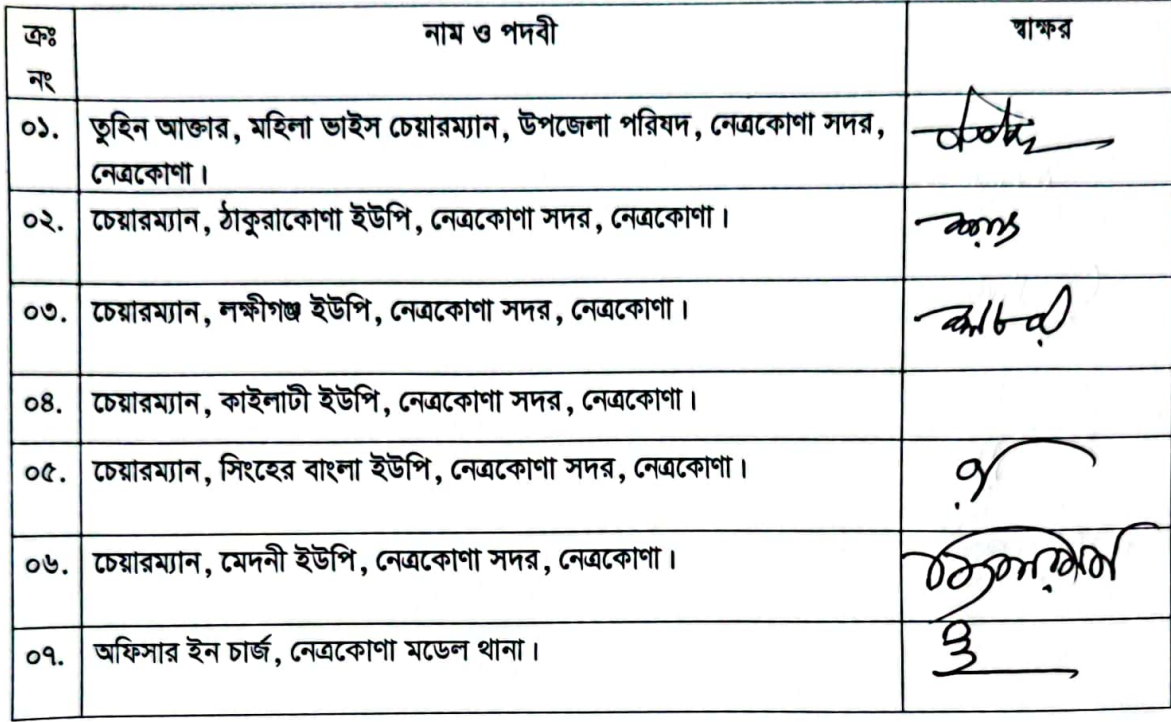 ক্রঃ নাম ও পদবী স্বাক্ষর
নং
০১. তুহিন আক্তার, মহিলা ভাইস চেয়ারম্যান, উপজেলা পরিষদ, নেত্রকোণা সদর,
নেত্রকোণা।
০২. চেয়ারম্যান, ঠাকুরাকোণা ইউপি, নেত্রকোণা সদর, নেত্রকোণা।
০৩. চেয়ারম্যান, লক্ষীগঞ্জ ইউপি, নেত্রকোণা সদর, নেত্রকোণা।
০৪. চেয়ারম্যান, কাইলাটী ইউপি, নেত্রকোণা সদর, নেত্রকোণা।
০৫. চেয়ারম্যান, সিংহের বাংলা ইউপি, নেত্রকোণা সদর, নেত্রকোণা।
০৬. চেয়ারম্যান, মেদনী ইউপি, নেত্রকোণা সদর, নেত্রকোণা।
০৭. অফিসার ইন চার্জ, নেত্রকোণা মডেল থানা।